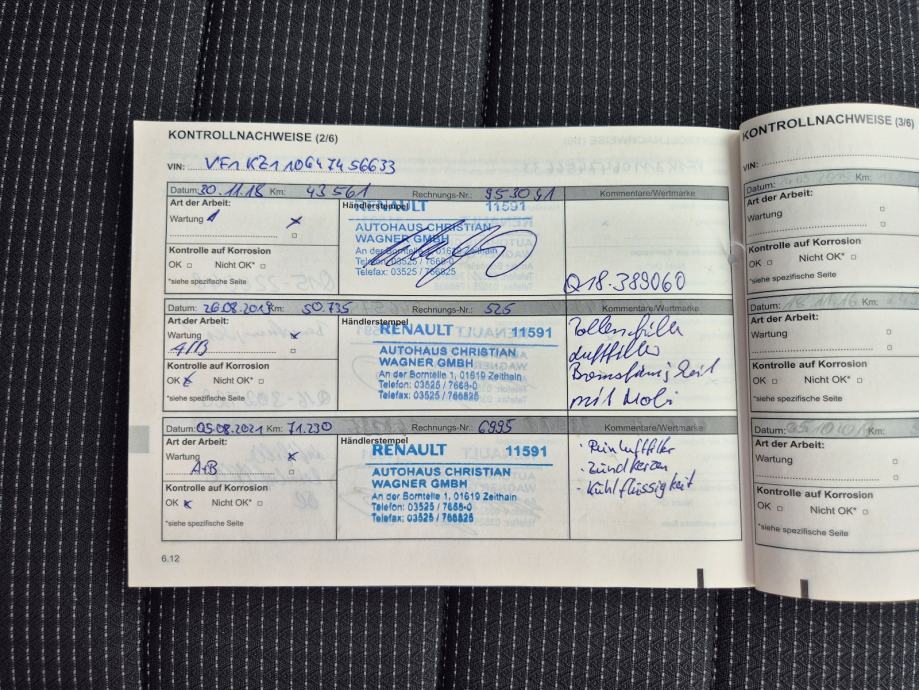 KONTROLLNACHWEISE (2/6)
VIN: VF1KZ110647456633
Datum: 30.11.18 Km: 43561 Rechnungs-Nr.: 953041 Kommentare/Wertmarke
Art der Arbeit:
Wartung 1 x
Kontrolle auf Korrosion
OK Nicht OK*
*siehe spezifische Seite
Händlerstempel
RENAULT 11591
AUTOHAUS CHRISTIAN
WAGNER GMBH
An der Borntelle 1, 01619 Zeithain
Telefon: 03525 / 7668-0
Telefax: 03525 / 766825
Q18.389060
Datum: 26.08.2019 Km: 50.735 Rechnungs-Nr.: 525 Kommentare/Wertmarke
Art der Arbeit:
Wartung x
A/B
Kontrolle auf Korrosion
OK x Nicht OK*
*siehe spezifische Seite
Händlerstempel
RENAULT 11591
AUTOHAUS CHRISTIAN
WAGNER GMBH
An der Borntelle 1, 01619 Zeithain
Telefon: 03525 / 7668-0
Telefax: 03525 / 766825
Pollenfilter
Luftfilter
Bremsflüssigkeit
mit Mobi
Datum: 05.08.2021 Km: 71.230 Rechnungs-Nr.: 6995 Kommentare/Wertmarke
Art der Arbeit:
Wartung x
A+B
Kontrolle auf Korrosion
OK x Nicht OK*
*siehe spezifische Seite
Händlerstempel
RENAULT 11591
AUTOHAUS CHRISTIAN
WAGNER GMBH
An der Borntelle 1, 01619 Zeithain
Telefon: 03525 / 7668-0
Telefax: 03525 / 766825
· Reinluftfilter
· Zündkerzen
· Kühlflüssigkeit
6.12
KONTROLLNACHWEISE (3/6)
VIN:
Datum: Km:
Art der Arbeit:
Wartung
Kontrolle auf Korrosion
OK Nicht OK*
*siehe spezifische Seite
Datum: Km:
Art der Arbeit:
Wartung
Kontrolle auf Korrosion
OK Nicht OK*
*siehe spezifische Seite
Datum: Km:
Art der Arbeit:
Wartung
Kontrolle auf Korrosion
OK Nicht OK*
*siehe spezifische Seite